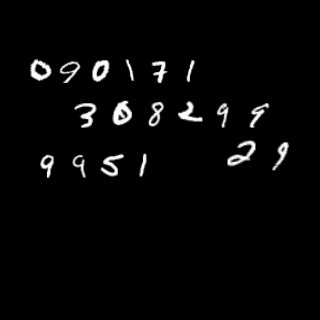 090171
308299
9951 29